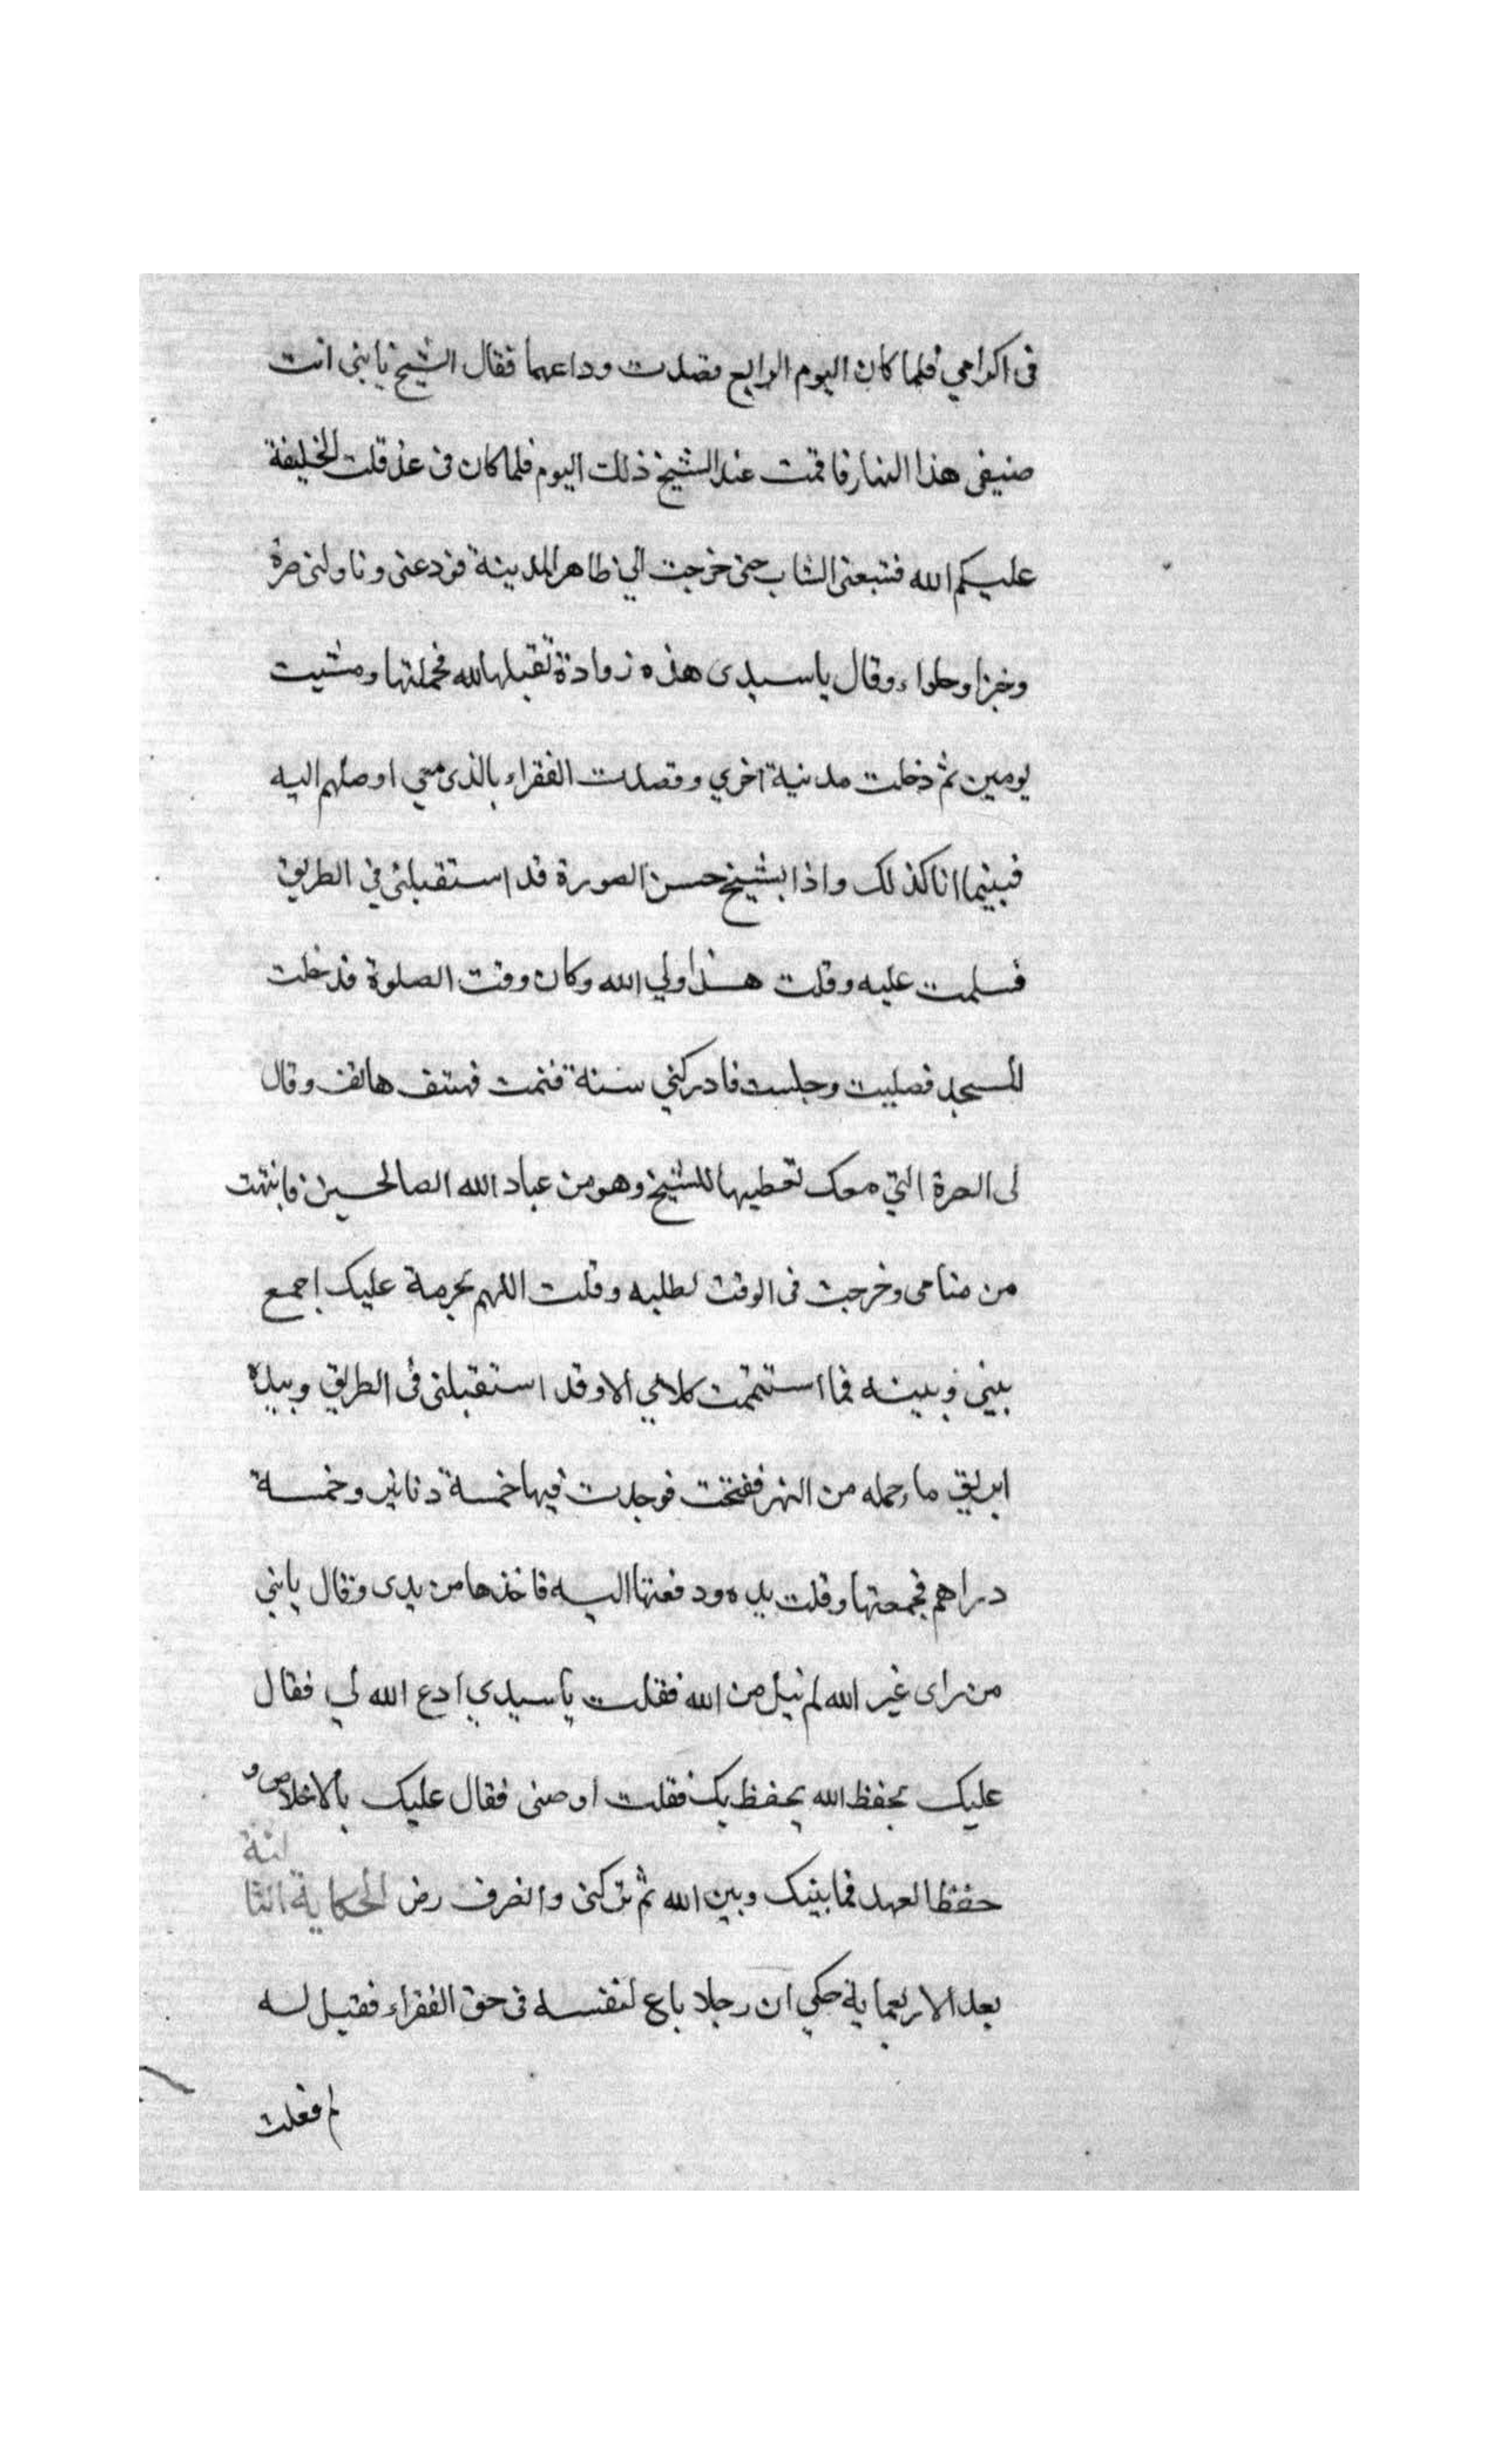 فى اكرامي فلما كان اليوم الرابع قصدت وداعهما فقال الشيخ يا بنى انت
ضيفى هذا النهار فاقمت عند الشيخ ذلك اليوم فلما كان فى غد قلت الخليفة
عليكم الله فتبعنى الشاب حتى خرجت الي ظاهر المدينة فودعنى وناولنى صرة
وخبزا وحلواء وقال يا سيدى هذه زوادة تقبلها لله فحملتها ومشيت
يومين ثم دخلت مدينة اخري وقصدت الفقراء بالذى معي اوصلهم اليه
فبينما انا كذلك واذا بشيخ حسن الصورة قد استقبلني في الطريق
فسلمت عليه وقلت هذا ولي الله وكان وقت الصلوة فدخلت
المسجد فصليت وجلست فادركني سنة فنمت فهتف هاتف وقال
لى الصرة التي معك تعطيها للشيخ وهو من عباد الله الصالحين فانتهت
من منامى وخرجت فى الوقت لطلبه وقلت اللهم بحرمة عليك اجمع
بيني وبينه فما استتممت كلامي الا وقد استقبلنى فى الطريق وبيده
ابريق ماء حمله من النهر ففتحت فوجدت فيها خمسة دنانير وخمسة
دراهم فجمعتها وقلت يده ودفعتها اليه فاخذها من يدى وقال يا بني
من راى غير الله لم ينل من الله فقلت يا سيدي ادع الله لي فقال
عليك بحفظ الله يحفظك فقلت اوصنى فقال عليك بالاخلاص و
حفظ العهد فما بينك وبين الله ثم تركنى وانصرف رض الحكاية الثا
لثة
بعد الاربعماية حكي ان رجلا باع لنفسه فى حق الفقراء فقيل له
لم فعلت